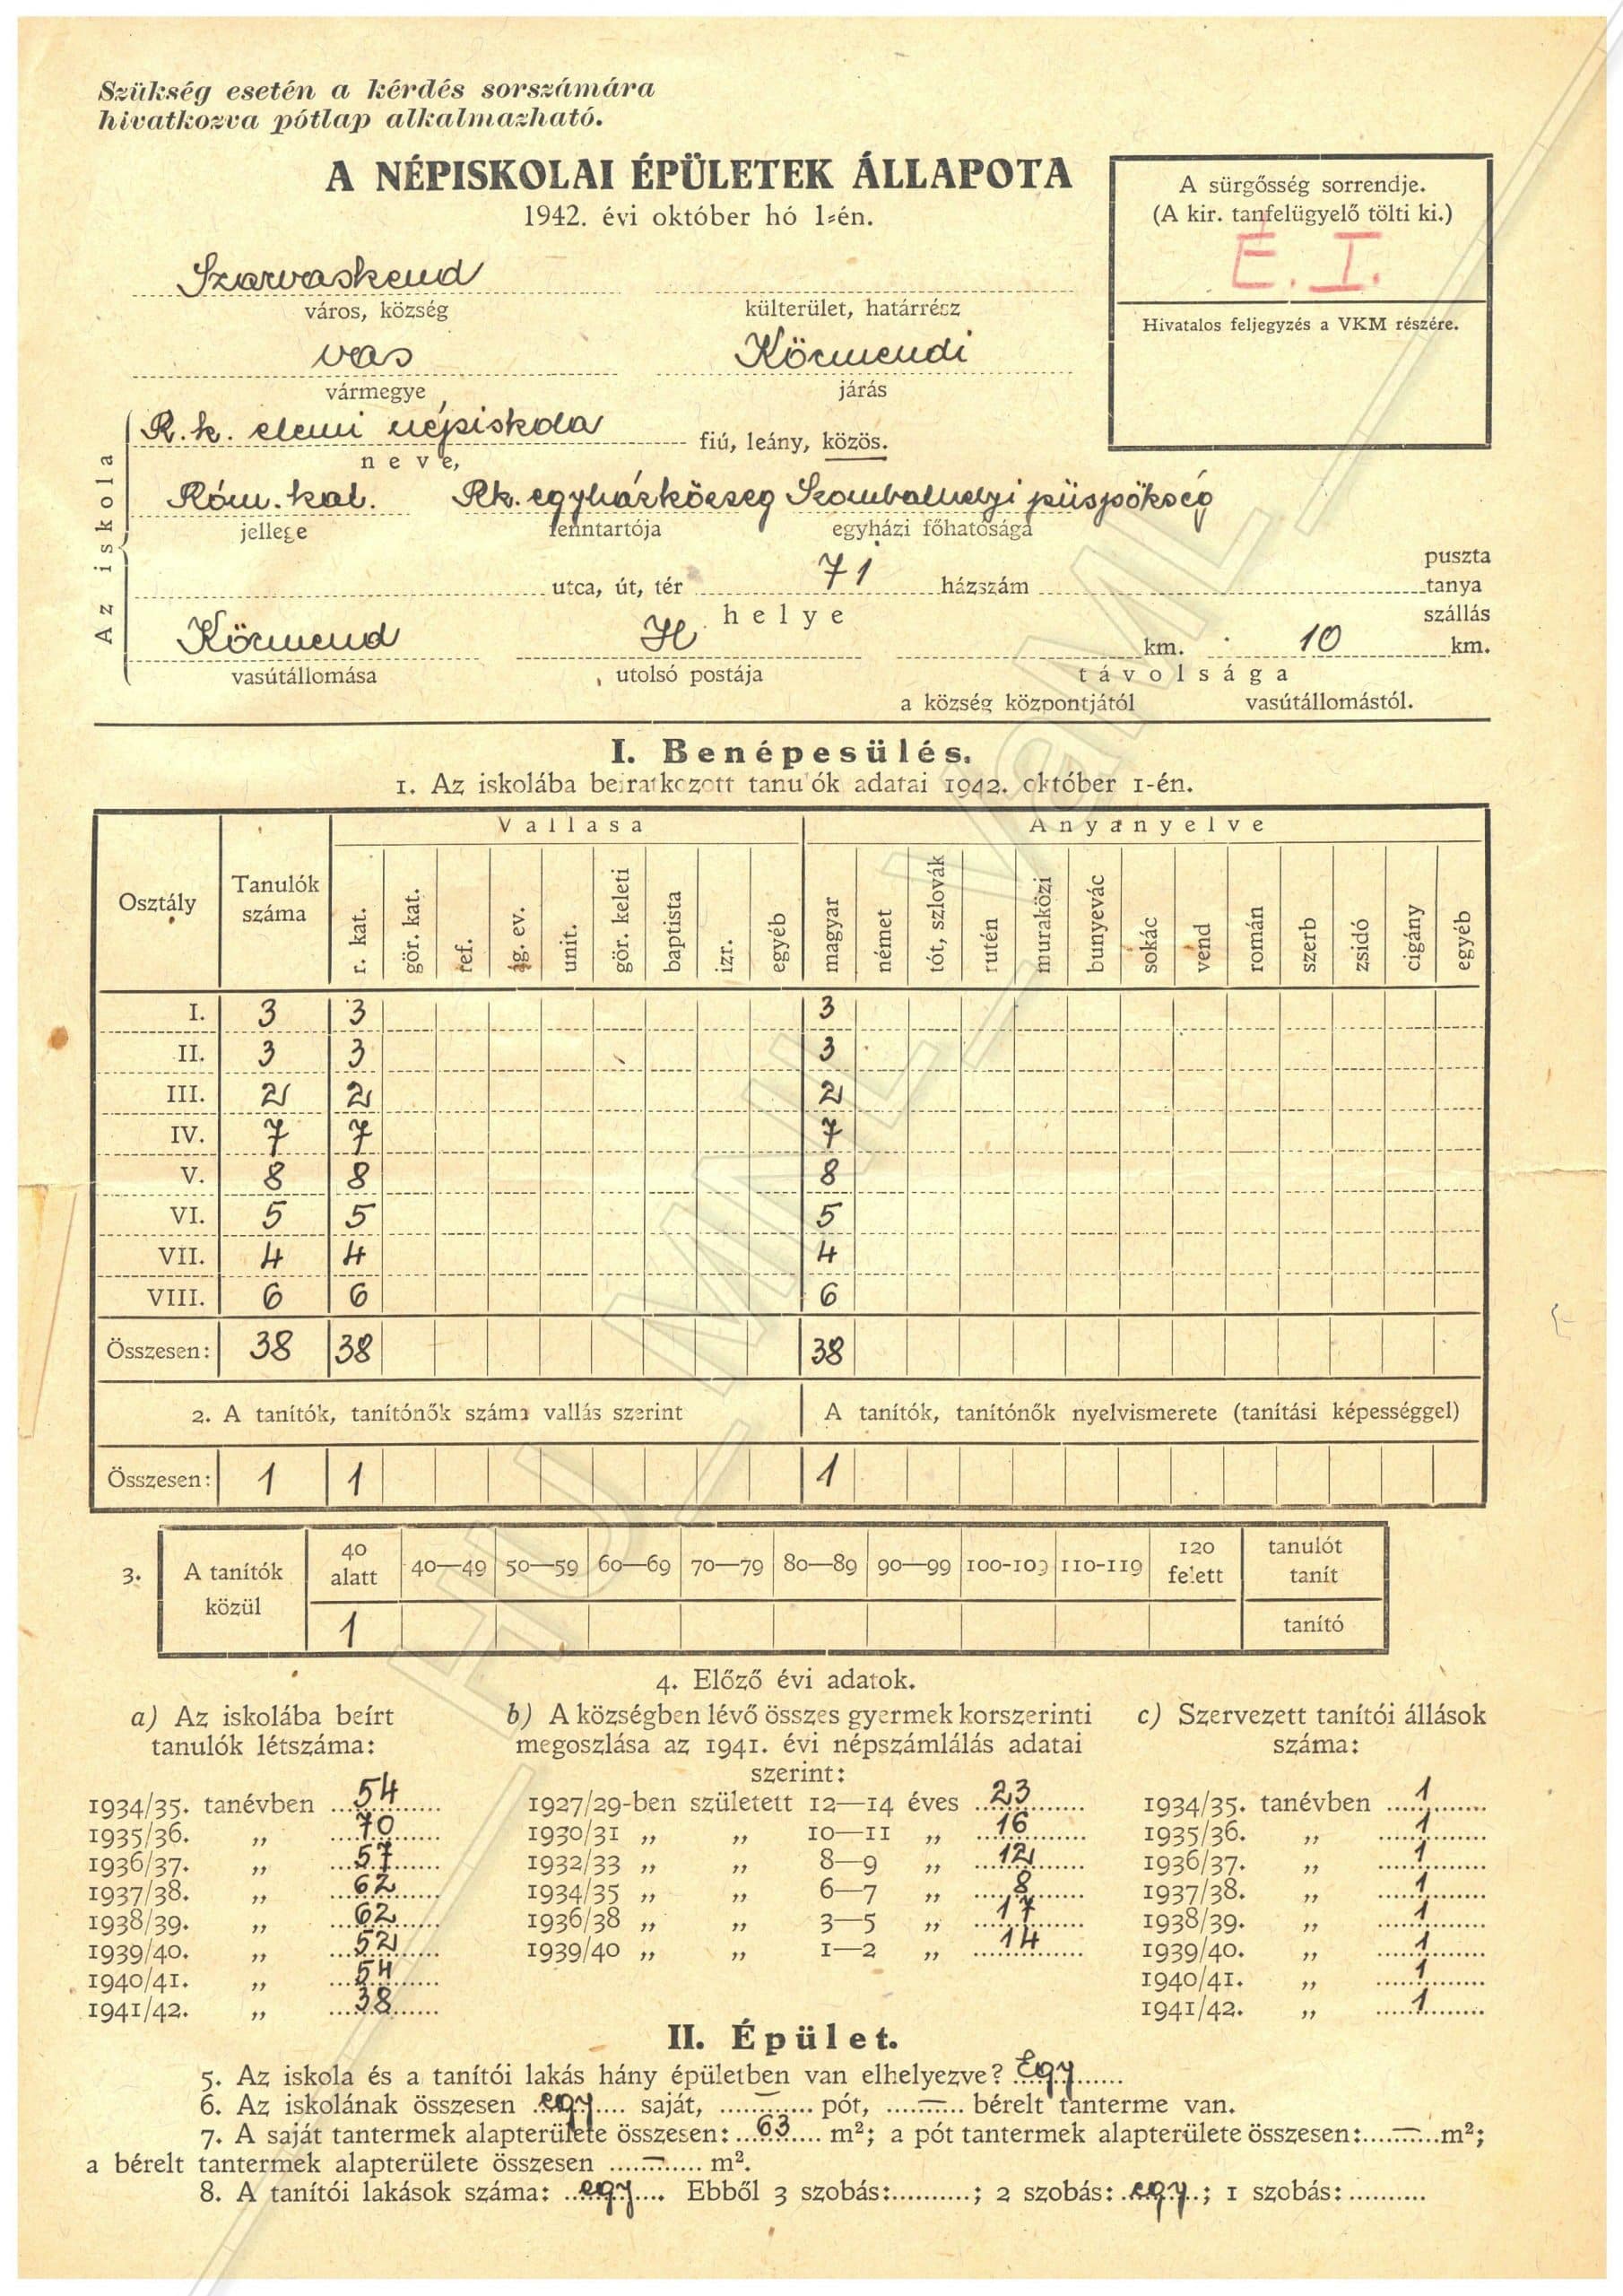 Szükség esetén a kérdés sorszámára
hivatkozva pótlap alkalmazható.
A NÉPISKOLAI ÉPÜLETEK ÁLLAPOTA
1942. évi október hó 1-én.
A sürgősség sorrendje.
(A kir. tanfelügyelő tölti ki.)
É. I.
Hivatalos feljegyzés a VKM részére.
Szarvaskend
város, község külterület, határrész
vas Körmendi
vármegye járás
Az iskola
R. k. elemi népiskola fiú, leány, közös.
neve,
Róm. kat. Rk. egyházközség Szombathelyi püspökség
jellege fenntartója egyházi főhatósága
utca, út, tér 71 házszám puszta
tanya
szállás
helye
Körmend H km. 10 km.
vasútállomása utolsó postája távolsága
a község központjától vasútállomástól.
I. Benépesülés.
1. Az iskolába beiratkozott tanulók adatai 1942. október 1-én.
Osztály Tanulók száma Vallása Anyanyelve
r. kat. gör. kat. ref. ág. ev. unit. gör. keleti baptista izr. egyéb magyar német tót, szlovák rutén muraközi bunyevác sokác vend román szerb zsidó cigány egyéb
I. 3 3 3
II. 3 3 3
III. 2 2 2
IV. 7 7 7
V. 8 8 8
VI. 5 5 5
VII. 4 4 4
VIII. 6 6 6
Összesen: 38 38 38
2. A tanítók, tanítónők száma vallás szerint A tanítók, tanítónők nyelvismerete (tanítási képességgel)
Összesen: 1 1 1
3. A tanítók közül 40 alatt 40—49 50—59 60—69 70—79 80—89 90—99 100-109 110-119 120 felett tanulót tanít
1 tanító
4. Előző évi adatok.
a) Az iskolába beírt b) A községben lévő összes gyermek korszerinti c) Szervezett tanítói állások
tanulók létszáma: megoszlása az 1941. évi népszámlálás adatai száma:
szerint:
1934/35. tanévben 54 1927/29-ben született 12—14 éves 23 1934/35. tanévben 1
1935/36. „ 70 1930/31 „ „ 10—11 „ 16 1935/36. „ 1
1936/37. „ 57 1932/33 „ „ 8—9 „ 12 1936/37. „ 1
1937/38. „ 62 1934/35 „ „ 6—7 „ 8 1937/38. „ 1
1938/39. „ 62 1936/38 „ „ 3—5 „ 17 1938/39. „ 1
1939/40. „ 52 1939/40 „ „ 1—2 „ 14 1939/40. „ 1
1940/41. „ 54 1940/41. „ 1
1941/42. „ 38 1941/42. „ 1
II. Épület.
5. Az iskola és a tanítói lakás hány épületben van elhelyezve? Egy
6. Az iskolának összesen egy saját, — pót, — bérelt tanterme van.
7. A saját tantermek alapterülete összesen: 63 m²; a pót tantermek alapterülete összesen: — m²;
a bérelt tantermek alapterülete összesen — m².
8. A tanítói lakások száma: egy. Ebből 3 szobás: ; 2 szobás: egy; 1 szobás:
HU_MNL_VaML